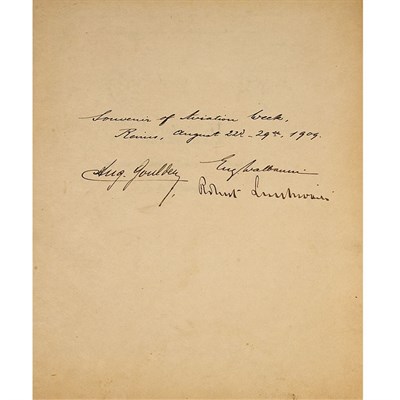 Souvenir of Aviation Week,
Reims, August 22d - 29th, 1909.
Aug. Goulden
Eug Walbaum
Robert